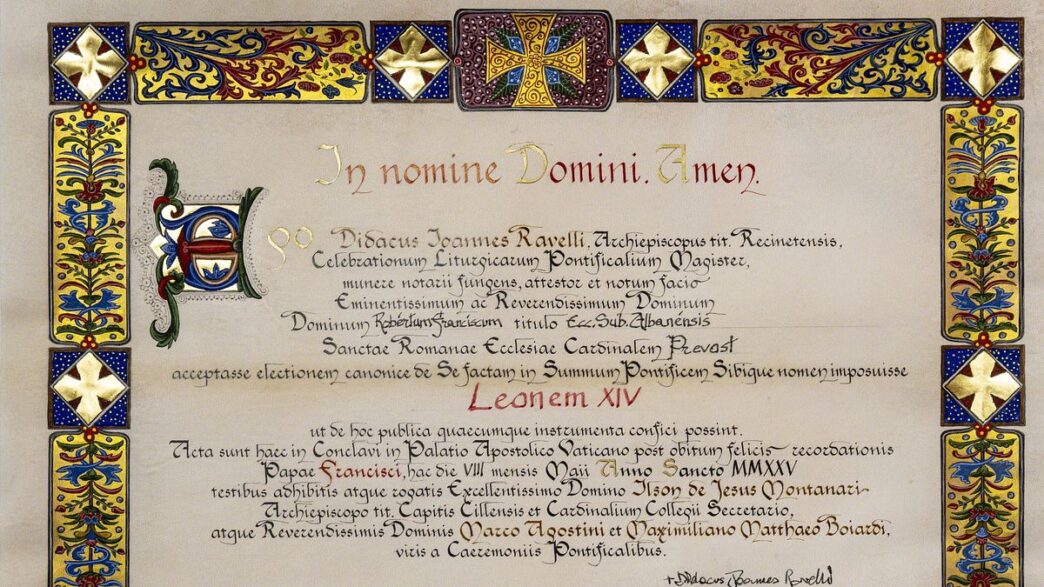 In nomine Domini. Amen.
Ego Didacus Joannes Ravelli, Archiepiscopus tit. Recinetensis,
Celebrationum Liturgicarum Pontificalium Magister,
munere notarii fungens, attestor et notum facio
Eminentissimum ac Reverendissimum Dominum
Dominum Robertum Franciscum titulo Ecc. Sub. Albanensis
Sanctae Romanae Ecclesiae Cardinalem Prevost
acceptasse electionem canonice de Se factam in Summum Pontificem Sibique nomen imposuisse
Leonem XIV
ut de hoc publica quaecumque instrumenta confici possint.
Acta sunt haec in Conclavi in Palatio Apostolico Vaticano post obitum felicis recordationis
Papae Francisci, hac die VIII mensis Maii Anno Sancto MMXXV
testibus adhibitis atque rogatis Excellentissimo Domino Ilson de Jesus Montanari
Archiepiscopo tit. Capitis Cillensis et Cardinalium Collegii Secretario,
atque Reverendissimis Dominis Marco Agostini et Maximiliano Matthaeo Boiardi,
viris a Caeremoniis Pontificalibus.
+ Didacus Joannes Ravelli